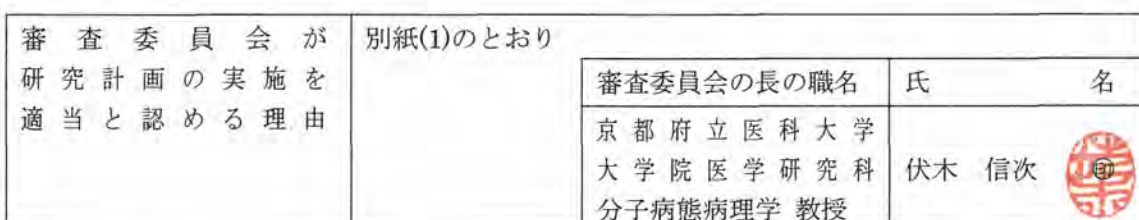 審査委員会が
研究計画の実施を
適当と認める理由
別紙(1)のとおり
審査委員会の長の職名
氏 名
京都府立医科大学
大学院医学研究科
分子病態病理学 教授
伏木 信次 ㊞